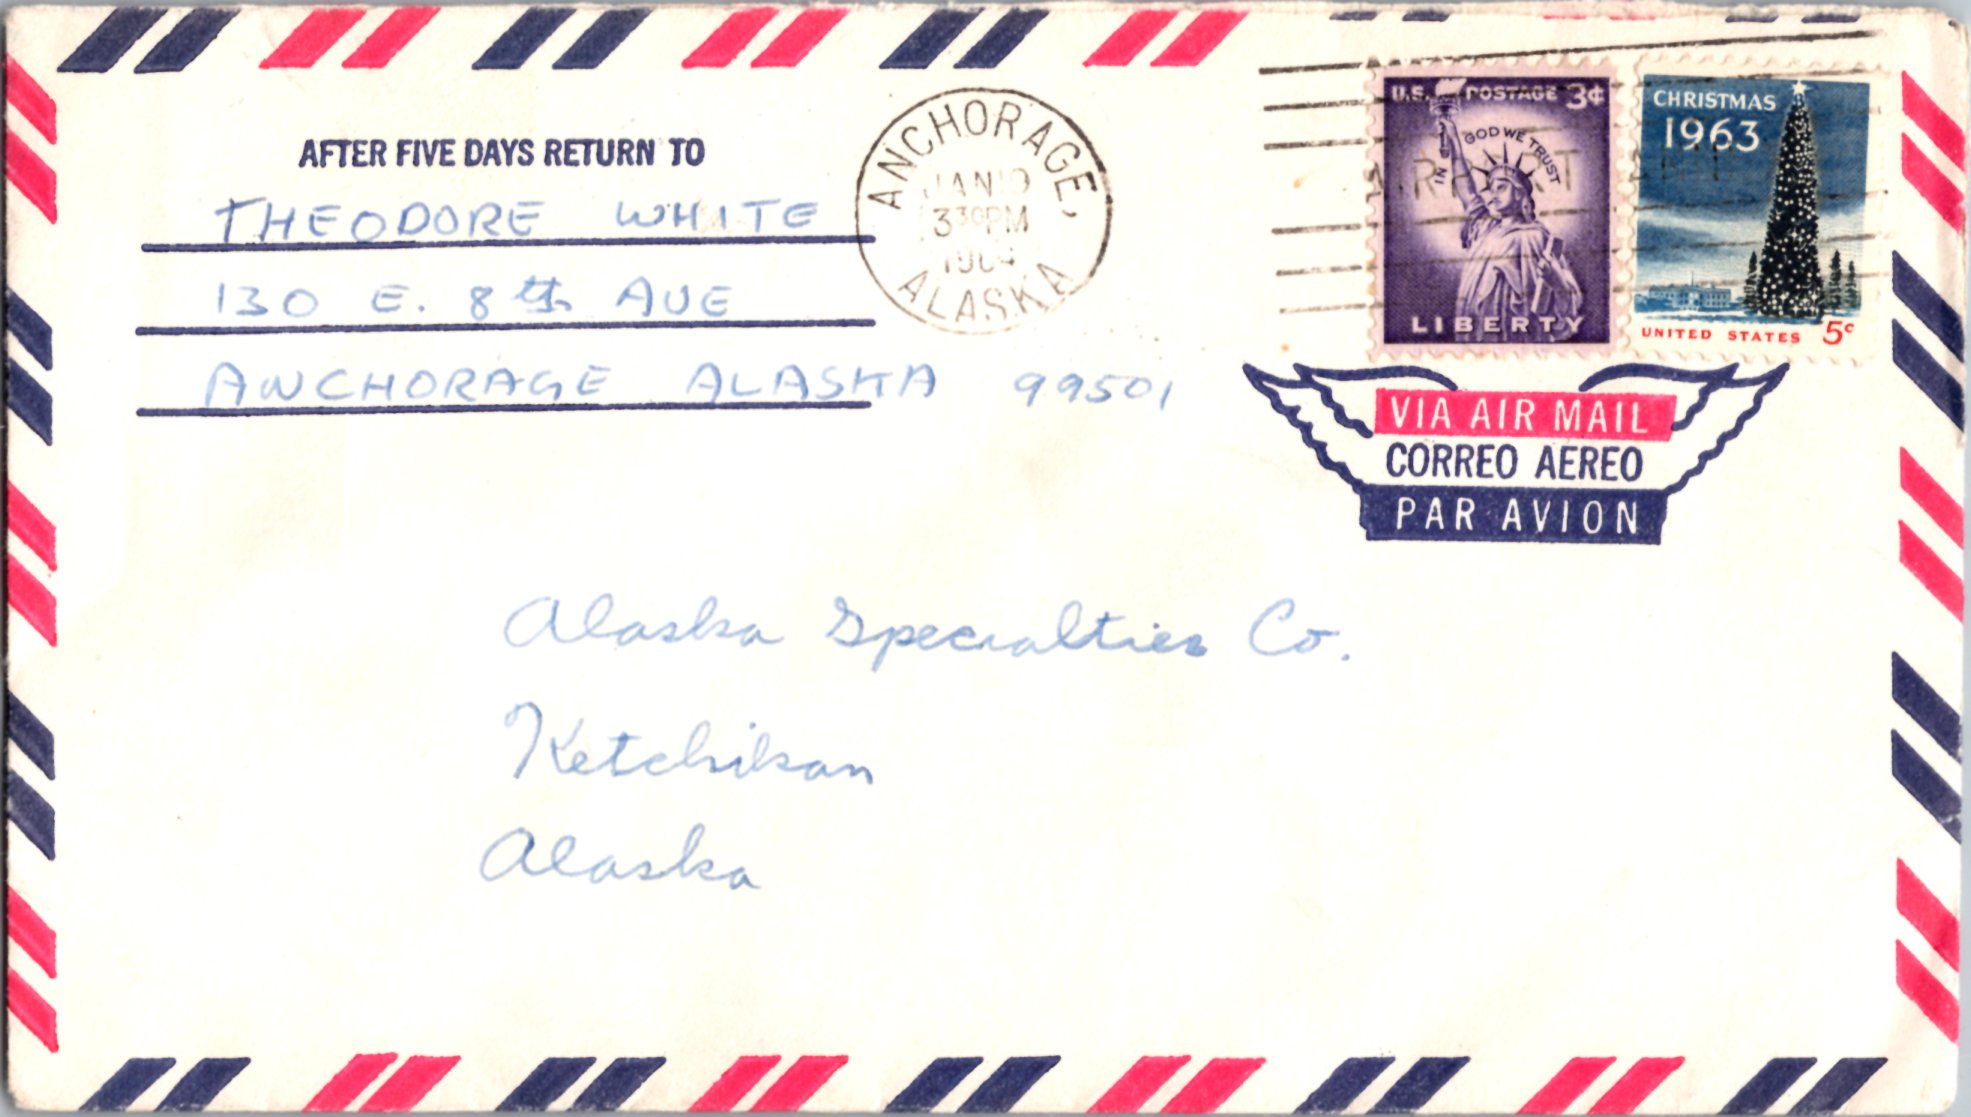 AFTER FIVE DAYS RETURN TO
THEODORE WHITE
130 E. 8th AVE
ANCHORAGE ALASKA 99501
ANCHORAGE,
JAN
3 30 PM
1964
ALASKA
U.S. POSTAGE 3¢
IN GOD WE TRUST
LIBERTY
CHRISTMAS
1963
UNITED STATES 5c
VIA AIR MAIL
CORREO AEREO
PAR AVION
Alaska Specialties Co.
Ketchikan
Alaska